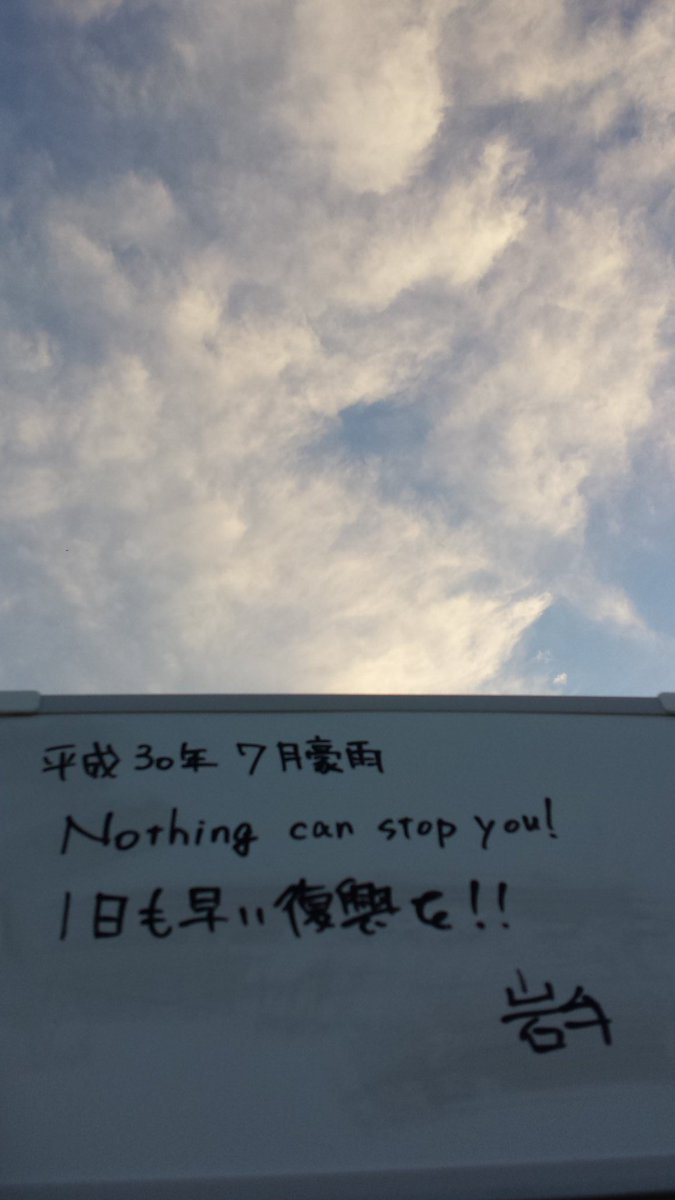 平成30年 7月豪雨
Nothing can stop you!
1日も早い復興を!!